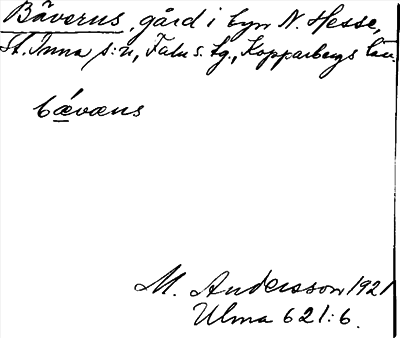 Bäverus, gård i byn N. Hesse,
St. Tuna s:n, Falu s. tg., Kopparbergs län.
bǽvæns
M. Andersson 1921
Ulma 621:6.